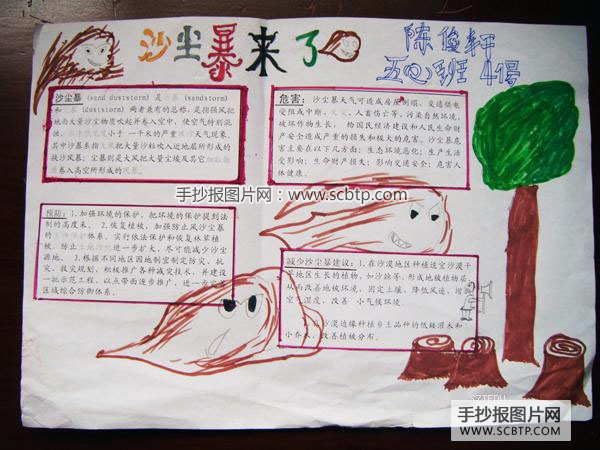 沙尘暴来了
陈俊轩
五(2)班 4号
沙尘暴(sand duststorm)是沙暴(sandstorm)
和尘暴(duststorm)两者兼有的总称，是指强风把
地面大量沙尘物质吹起并卷入空中，使空气特别混
浊，水平能见度小于一千米的严重风沙天气现象。
其中沙暴系指大风把大量沙粒吹入近地层所形成的
挟沙风暴；尘暴则是大风把大量尘埃及其它细粒物
质卷入高空所形成的风暴。
危害：沙尘暴天气可造成房屋倒塌、交通供电
受阻或中断、火灾、人畜伤亡等，污染自然环境，
破坏作物生长， 给国民经济建设和人民生命财
产安全造成严重的损失和极大的危害。沙尘暴危害
主要在以下几方面：生态环境恶化；生产生活
受影响；生命财产损失；影响交通安全；危害人
体健康。
手抄报图片网：www.scbtp.com
预防：1.加强环境的保护，把环境的保护提到法
制的高度来。 2.恢复植被，加强防止风沙尘暴
的生物保护体系。实行依法保护和恢复林草植
被，防止土地沙化进一步扩大，尽可能减少沙尘
源地。 3.根据不同地区因地制宜制定防灾、抗
灾、救灾规划，积极推广各种减灾技术，并建设
一批示范工程，以点带面逐步推广，进一步完善
区域综合防御体系。
减少沙尘暴建议：1.在沙漠地区种植适宜沙漠干
旱地区生长的植物，如沙棘等，形成地被植物层，
从而改善地被环境，固定土壤、降低风速，增
空气湿度，改善 小气候环境。
2.在沙漠边缘种植乡土品种的低矮灌木和
小乔木，改善植被分布。
手抄报图片网
WWW.SCBTP.COM